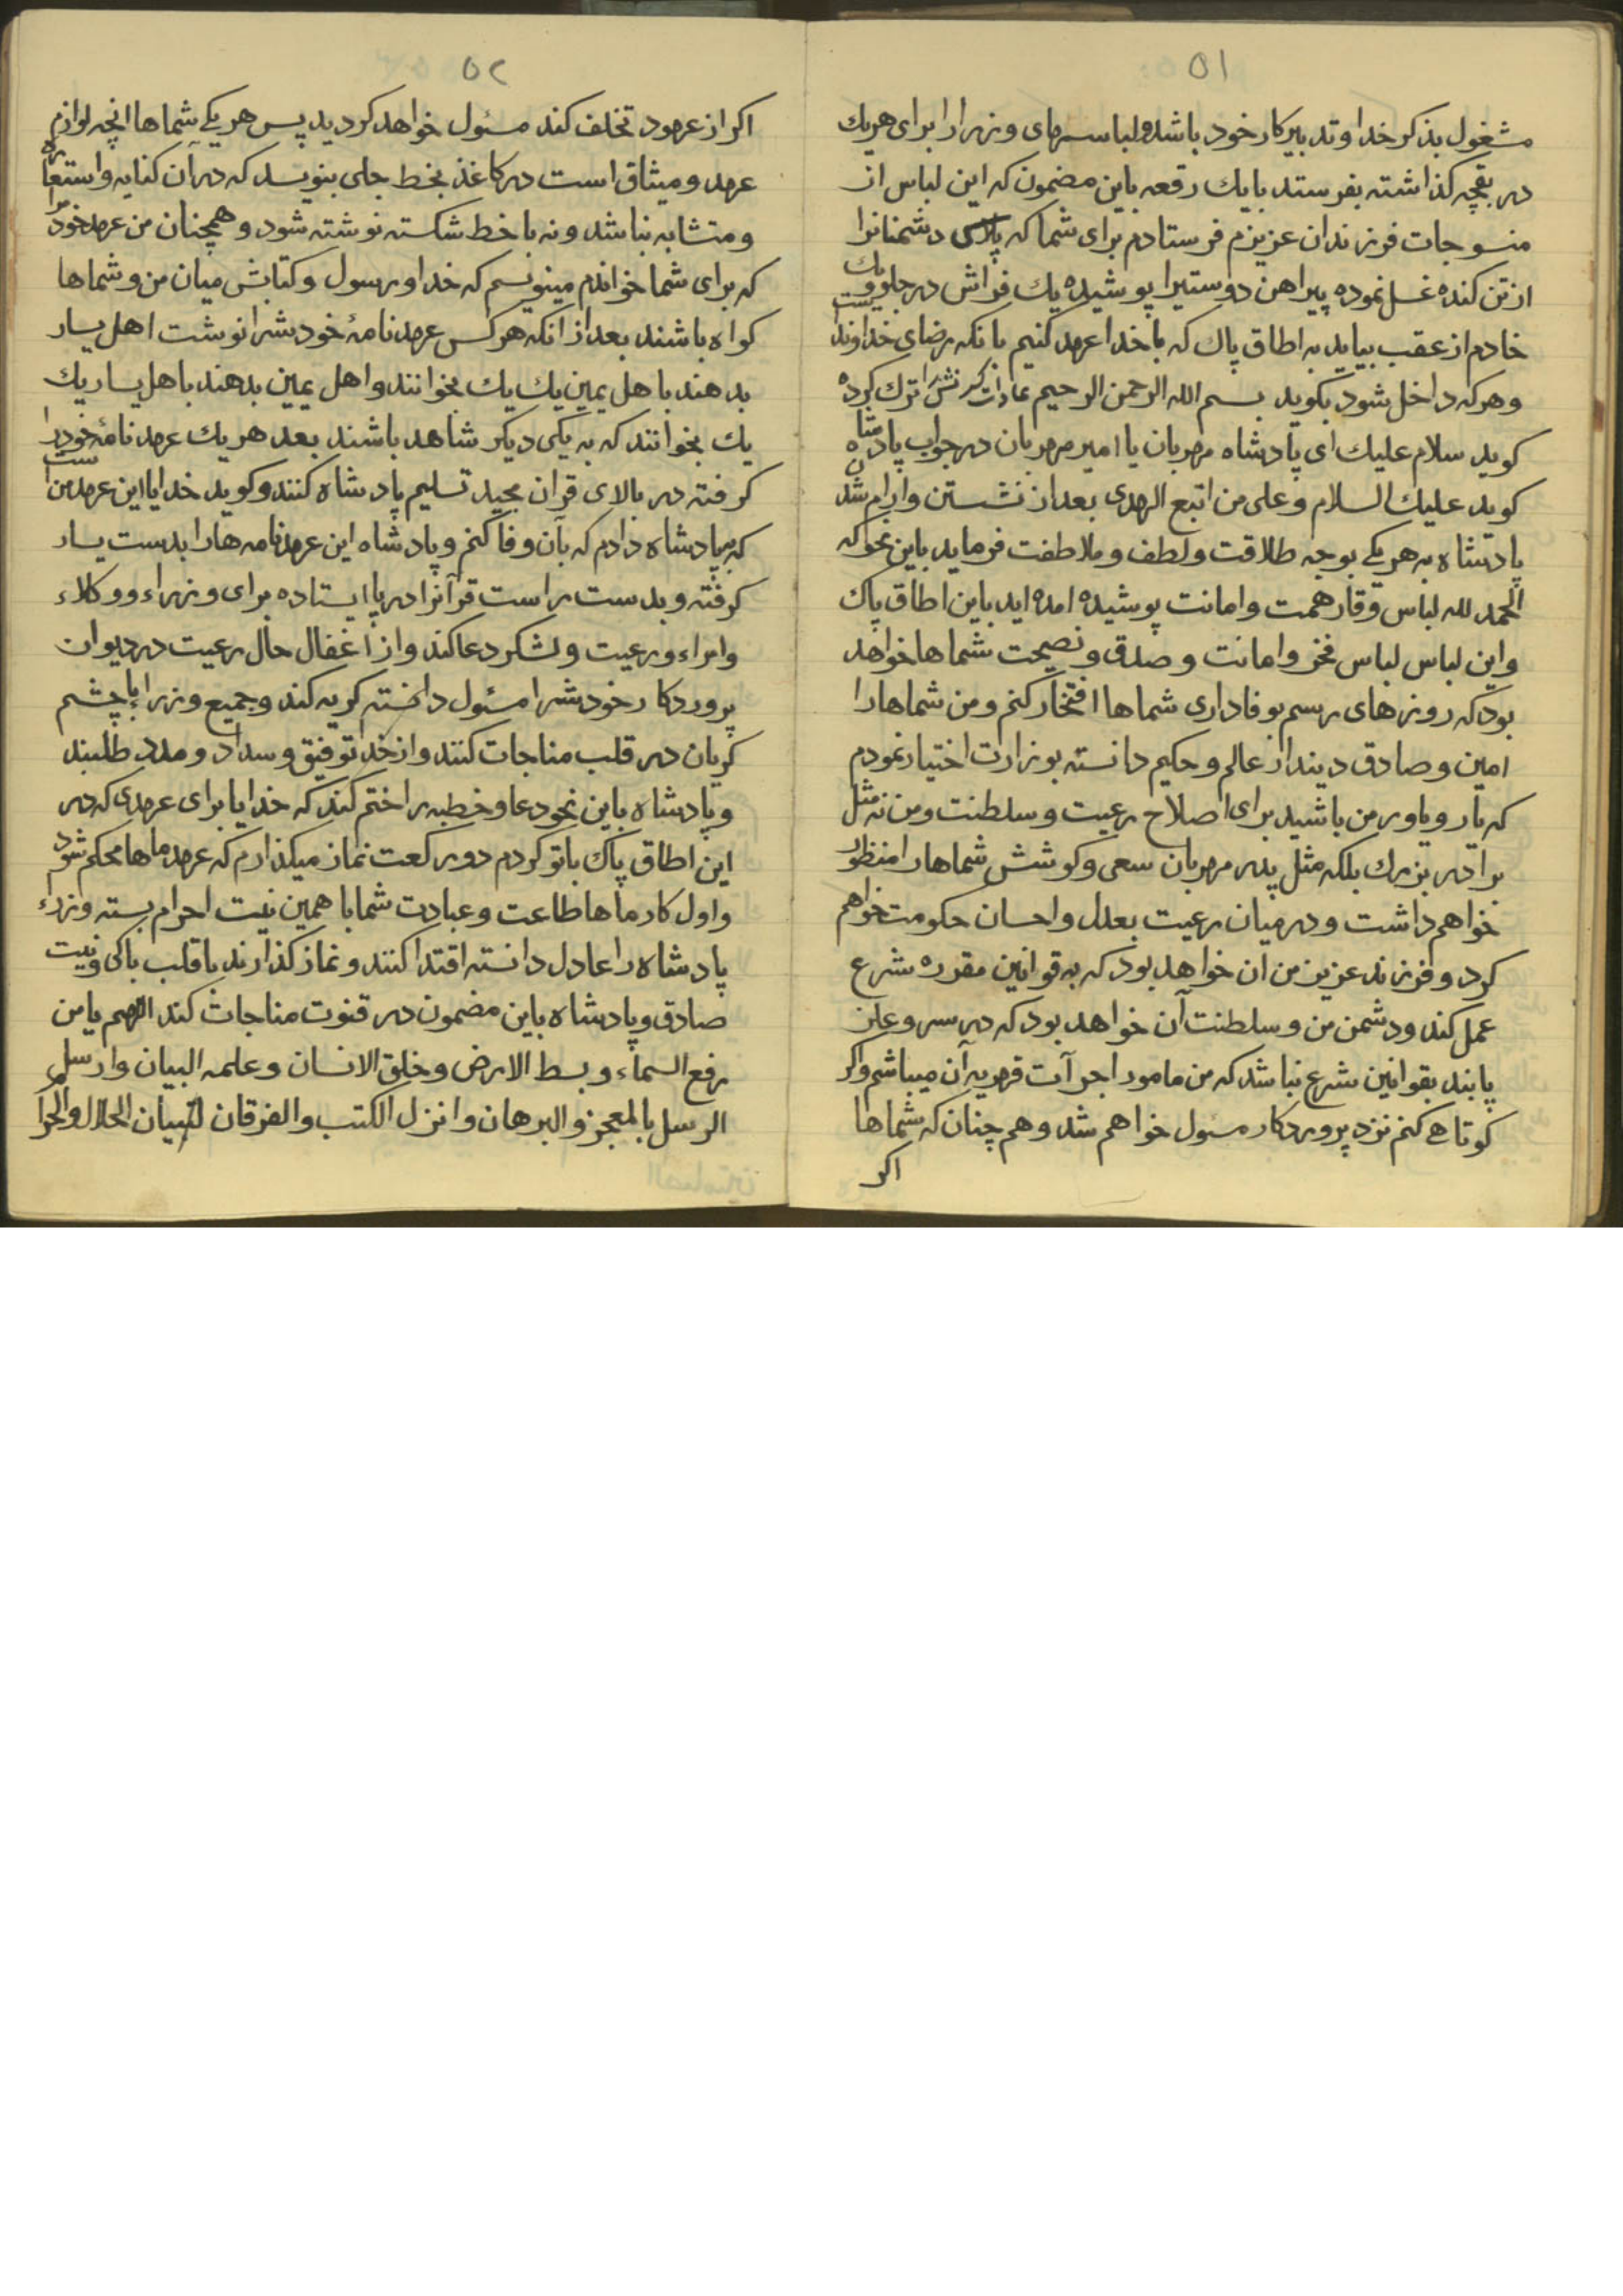 ۵۱
مشغول بذکر خدا و تدبیر کار خود باشد و لباسهای وزرا را برای هریك
در بقچه کذاشته بفرستد با یك رقعه باین مضمون که این لباس از
منسوجات فرزندان عزیزم فرستادم برای شما که پلاس دشمنانرا
از تن کنده غسل نموده پیراهن دوستیرا پوشیده یك فراش در جلو و یك
خادم از عقب بیاید به اطاق پاك که با خدا عهد کنیم بانکه رضای خداوند
وهرکه داخل شود بکوید بسم الله الرحمن الرحیم عادات ترك کرده
کوید سلام علیك ای پادشاه مهربان یا امیر مهربان در جواب پادشاه
کوید علیك السلام وعلی من اتبع الهدی بعد از نشستن وارام شدن
پادشاه به هریکے بوجه طلاقت ولطف وملاطفت فرماید باین نحو که
الحمد لله لباس وقار همت وامانت پوشیده امده اید باین اطاق پاك
واین لباس لباس فخر وامانت وصدق ونصیحت شماها خواهد
بود که روزهای رسم بوفاداری شماها افتخار کنم ومن شماها را
امین وصادق دیندار عالم وحکیم دانسته بوزارت اختیار نمودم
که یار ویاور من باشید برای اصلاح رعیت وسلطنت ومن نه مثل
برادر بزرك بلکه مثل پدر مهربان سعی وکوشش شماها را منظور
خواهم داشت ودر میان رعیت بعدل واحسان حکومت خواهم
کرد وفرزند عزیز من ان خواهد بود که به قوانین مقرره شرع
عمل کند ودشمن من وسلطنت آن خواهد بود که در سر وعلن
پابند بقوانین شرع نباشد که من مامور اجرآت قهریه آن میباشم واکر
کوتاهے کنم نزد پروردکار مسئول خواهم شد وهم چنان که شماها
اکر
۵۲
اکر از عهود تخلف کند مسئول خواهد کردید پس هریکے شماها انچه لوازم
عهد ومیثاق است در کاغذ بخط جلی بنویسد که در آن کنایه واستعاره
ومتشابه نباشد ونه با خط شکسته نوشته شود وهمچنان من عهد خودرا
که برای شما خواندم مینویسم که خدا ورسول وکتابش میان من وشماها
کواه باشند بعد از انکه هرکس عهدنامهٔ خودشرا نوشت اهل یسار
بدهند باهل یمین یك یك بخوانند واهل یمین بدهند باهل یسار یك
یك بخوانند که به یکی دیکر شاهد باشند بعد هریك عهدنامهٔ خودرا
کرفته در بالای قران مجید تسلیم پادشاه کنند وکوید خدایا این عهد من است
که بپادشاه دادم که بآن وفا کنم وپادشاه این عهدنامه هارا بدست یسار
کرفته وبدست راست قرآنرا در پا ایستاده برای وزراء ووکلاء
وامراء ورعیت ولشکر دعا کند واز اغفال حال رعیت در دیوان
پروردکار خودشرا مسئول دانسته کریه کند وجمیع وزرا با چشم
کریان در قلب مناجات کنند واز خدا توفیق وسداد ومدد طلبند
وپادشاه باین نحو دعا وخطبه را ختم کند که خدایا برای عهدی که در
این اطاق پاك باتو کردم دو رکعت نماز میکذارم که عهد ماها محکم شود
واول کار ماها طاعت وعبادت شما با همین نیت احرام بسته وزراء
پادشاه را عادل دانسته اقتدا کنند ونماز کذارند با قلب پاکی ونیت
صادق وپادشاه باین مضمون در قنوت مناجات کند اللهم یا من
رفع السماء وبسط الارض وخلق الانسان وعلمه البیان وارسل
الرسل بالمعجز والبرهان وانزل الکتب والفرقان لتبیان الحلال والحرام